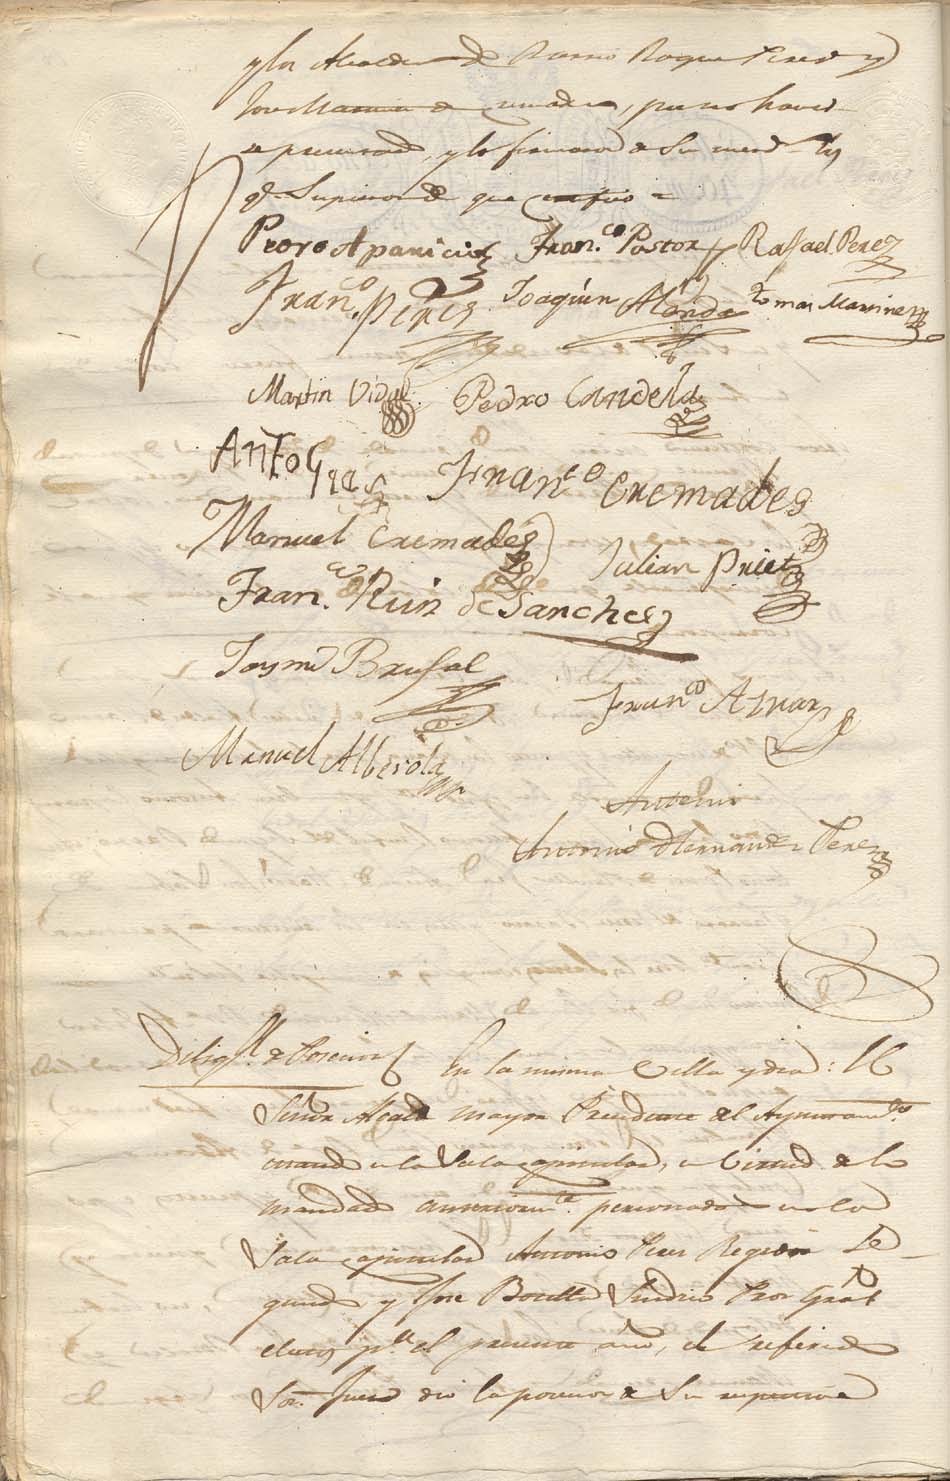 y los Alcaldes de Barrio Roque Perez y
de quadra, por no haver
y lo firmaron de Su mrd. los
q.e Supieron de que certifico =
Pedro Aparicio Fran.co Pastor Rafael Perez
Fran.co Perez Joaquin Alenda Tomas Martinez
Martin Vidal Pedro Candela
Anto Gras Fran.co Cremades
Manuel Cremades Julian Prieto
Fran.co Ruiz de Sanchez
Jayme Brufal
Fran.co Aznar
Manuel Alberola
Antemi
Antonio Hernandez Perez
Dilig.a de Posesion En la misma Villa y dia: El
Señor Alcalde mayor Presidente del Ayuntam.to
estando en la Sala capitular, en virtud de lo
mandado anteriorm.te personados en la
Sala capitular Antonio Perez Regidor Se
gundo y Jose Botella Sindico Pror Gral
electos p.a el presente año, el referido
Sor. Juez dio la posesion de Su respectivo